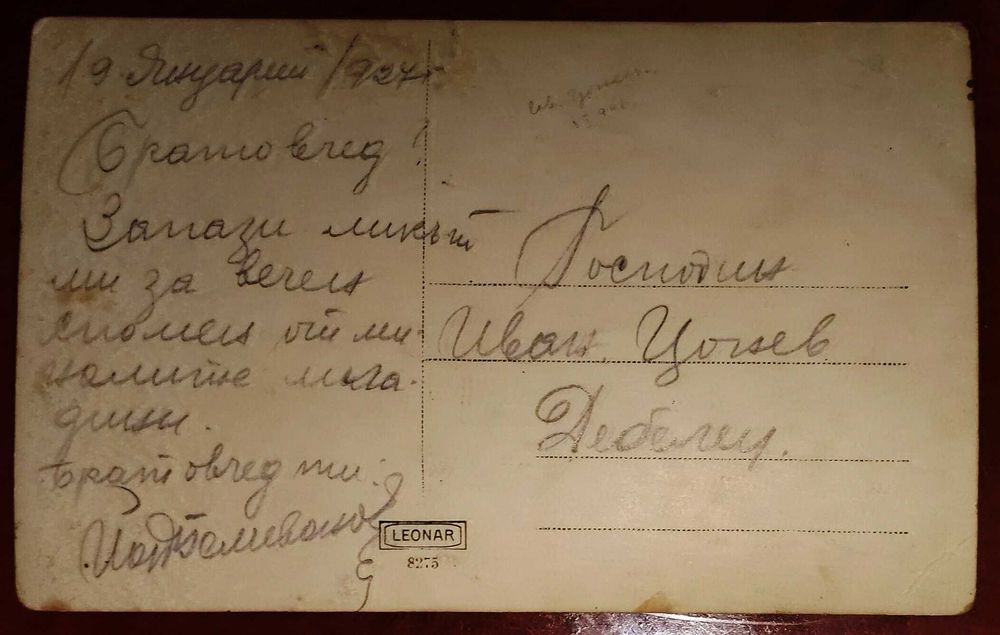 19 Януарий 1927 г
Братовчед!
Запази ликът
ми за вечен
спомен от ми-
налите мла-
дини.
Братовчед ти:
Господин
Иван Цонев
Дебелец.
LEONAR
8275